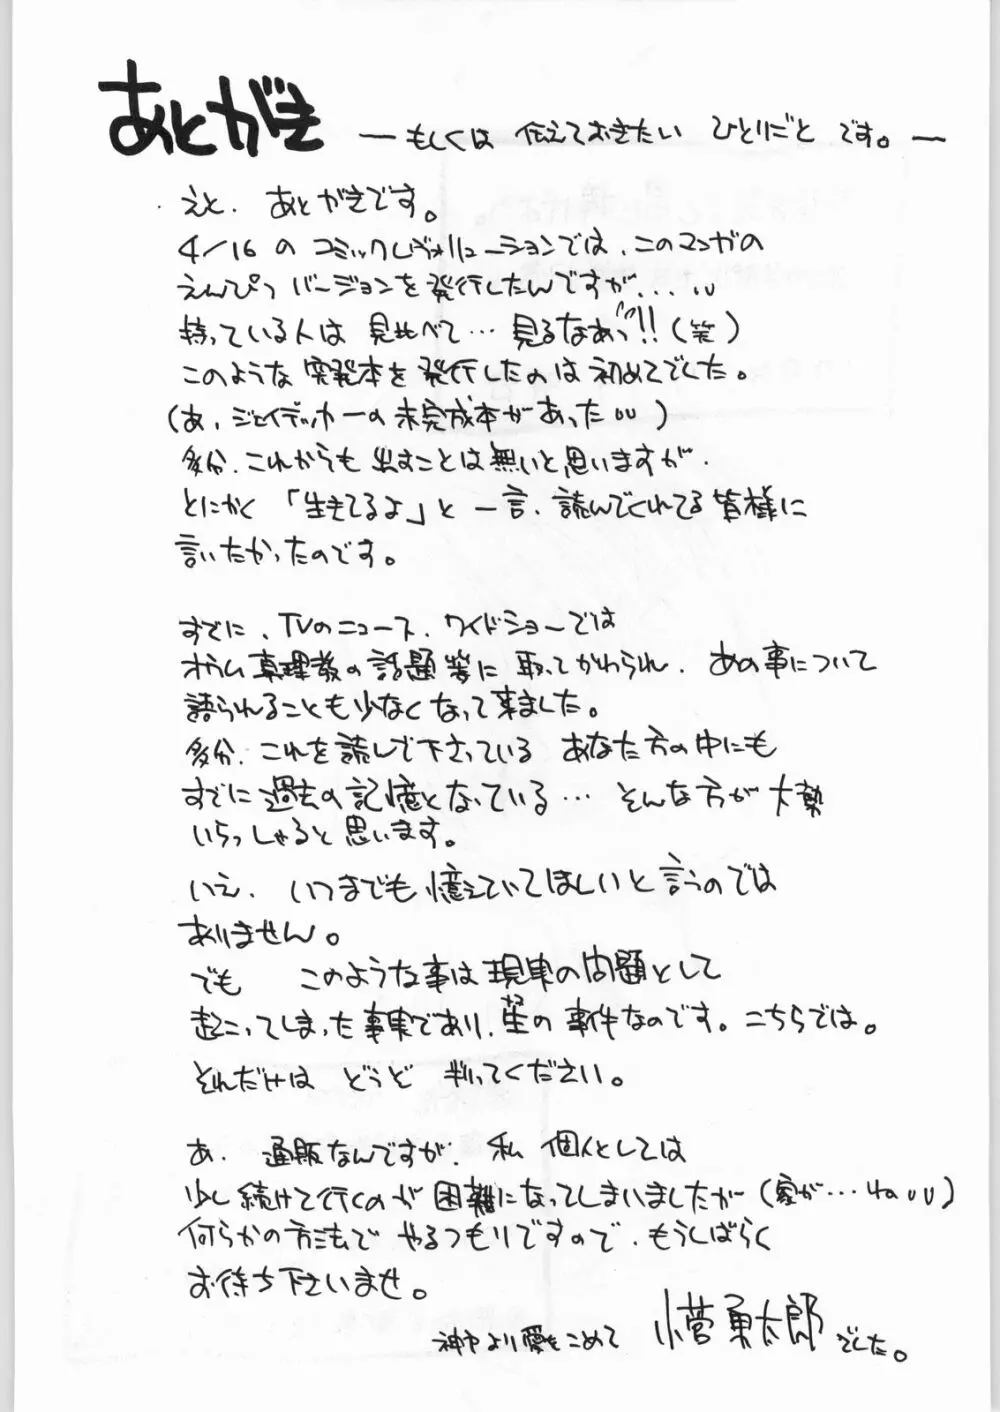 あとがき
―もしくは 伝えておきたい ひとりごと です。―
えと、あとがきです。
4/16 の コミックレヴォリューションでは、このマンガの
えんぴつ バージョンを発行したんですが...
持っている人は 見比べて… 見るなあっ!!(笑)
このような 突発本を 発行したのは 初めてでした。
(あ、ジェイデッカーの未完成本があった)
多分、これからも 出すことは無いと思いますが、
とにかく 「生きてるよ」と 一言、読んでくれてる皆様に
言いたかったのです。
すでに、TVのニュース、ワイドショーでは
オウム真理教の話題等に取ってかわられ、あの事について
語られることも少なくなって来ました。
多分、これを読んで下さっている あなた方の中にも
すでに過去の記憶となっている… そんな方が大勢
いらっしゃると思います。
いえ、いつまでも憶えていてほしいと言うのでは
ありません。
でも このような事は現実の問題として
起こってしまった事実であり、の事件なのです。こちらでは。
それだけは どうぞ 判ってください。
あ、通販なんですが、私 個人としては
少し続けて行くのが困難になってしまいましたが(家が…ね)
何らかの方法で やるつもりですので、もうしばらく
お待ち下さいませ。
神戸より愛をこめて 小菅勇太郎でした。